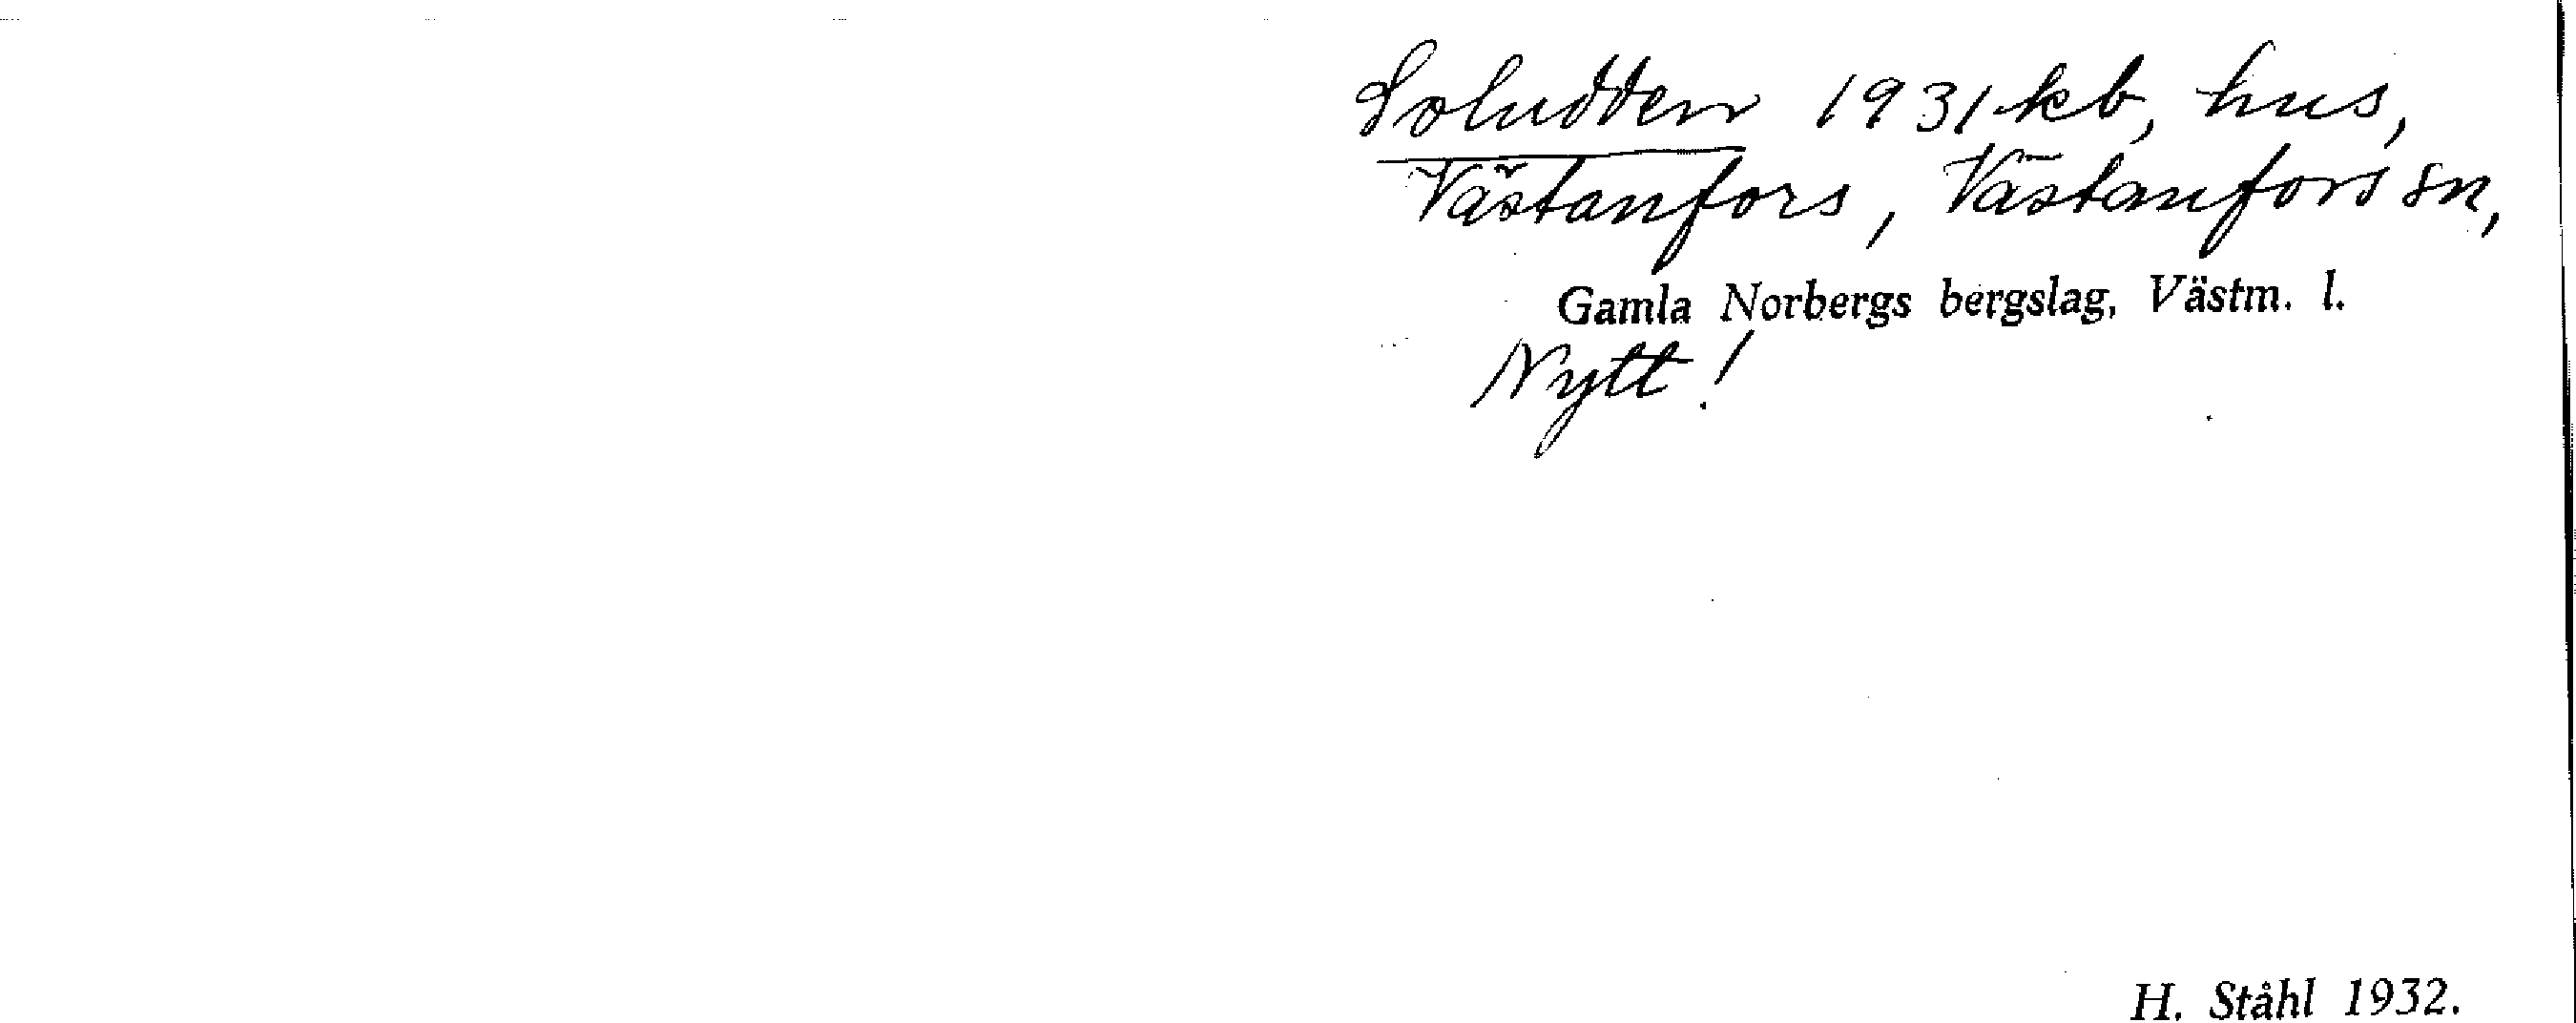 Soludden 1931 kb, hus,
Västanfors, Västanfors sn,
Gamla Norbergs bergslag, Västm. l.
Nytt!
H. Ståhl 1932.